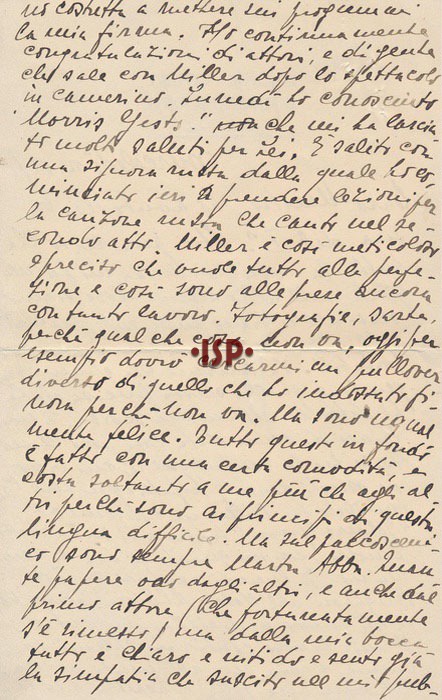 no costretta a mettere sui programmi
la mia firma. Ho continuamente
congratulazioni di attori, e di gente
che sale con Miller dopo lo spettacolo
in camerino. Lunedì ho conosciuto
"Morris Gest." che mi ha lascia
to molti saluti per Lei. È salito con
una signora russa dalla quale ho co,
minciato ieri a prendere lezioni per
la canzone russa che canto nel se-
condo atto. Miller è così meticoloso
e preciso che vuole tutto alla perfe-
zione e così sono alle prese ancora
con tanto lavoro. Fotografie, sarta,
perchè qualche cosa non va, oggi per
esempio dovrò cercarmi un pullover
diverso di quello che ho indossato fi-
nora perchè non va. Ma sono ugual
mente felice. Tutto questo in fondo
è fatto con una certa comodità, e
costa soltanto a me più che agli al
tri perchè sono ai principi di questa
lingua difficile. Ma sul palcosceni-
co sono sempre Marta Abba. Quan
te papere odo dagli altri, e anche dal
primo attore (che fortunatamente
s'è rimesso) ma dalla mia bocca
tutto è chiaro e nitido e sento già
la simpatia che suscito nel mio pub-
ISP